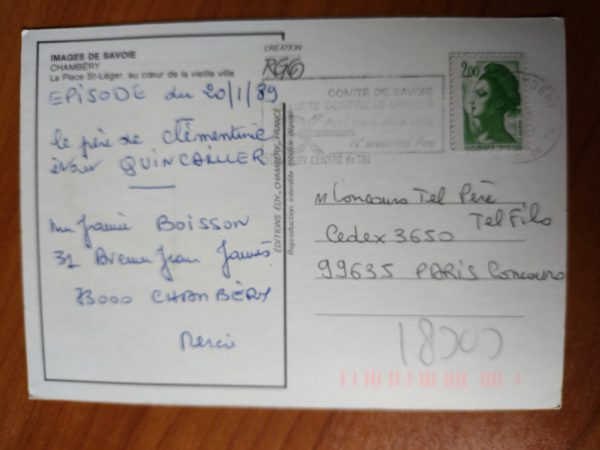 IMAGES DE SAVOIE
CHAMBÉRY
La Place St-Léger, au cœur de la vieille ville
EPISODE du 20/1/89
le père de Clémentine
était QUINCAILLER
BOISSON
31 Avenue Jean Jaurès
73000 CHAMBÉRY
Merci
CRÉATION
ÉDITIONS EDY-CHAMBÉRY-FRANCE
Reproduction interdite modèle déposé
COMITÉ DE SAVOIE
LUTTE CONTRE LE CANCER
CENTRE de TRI
2,00
Concours Tel Père
Tel Fils
Cedex 3650
99635 PARIS Concours